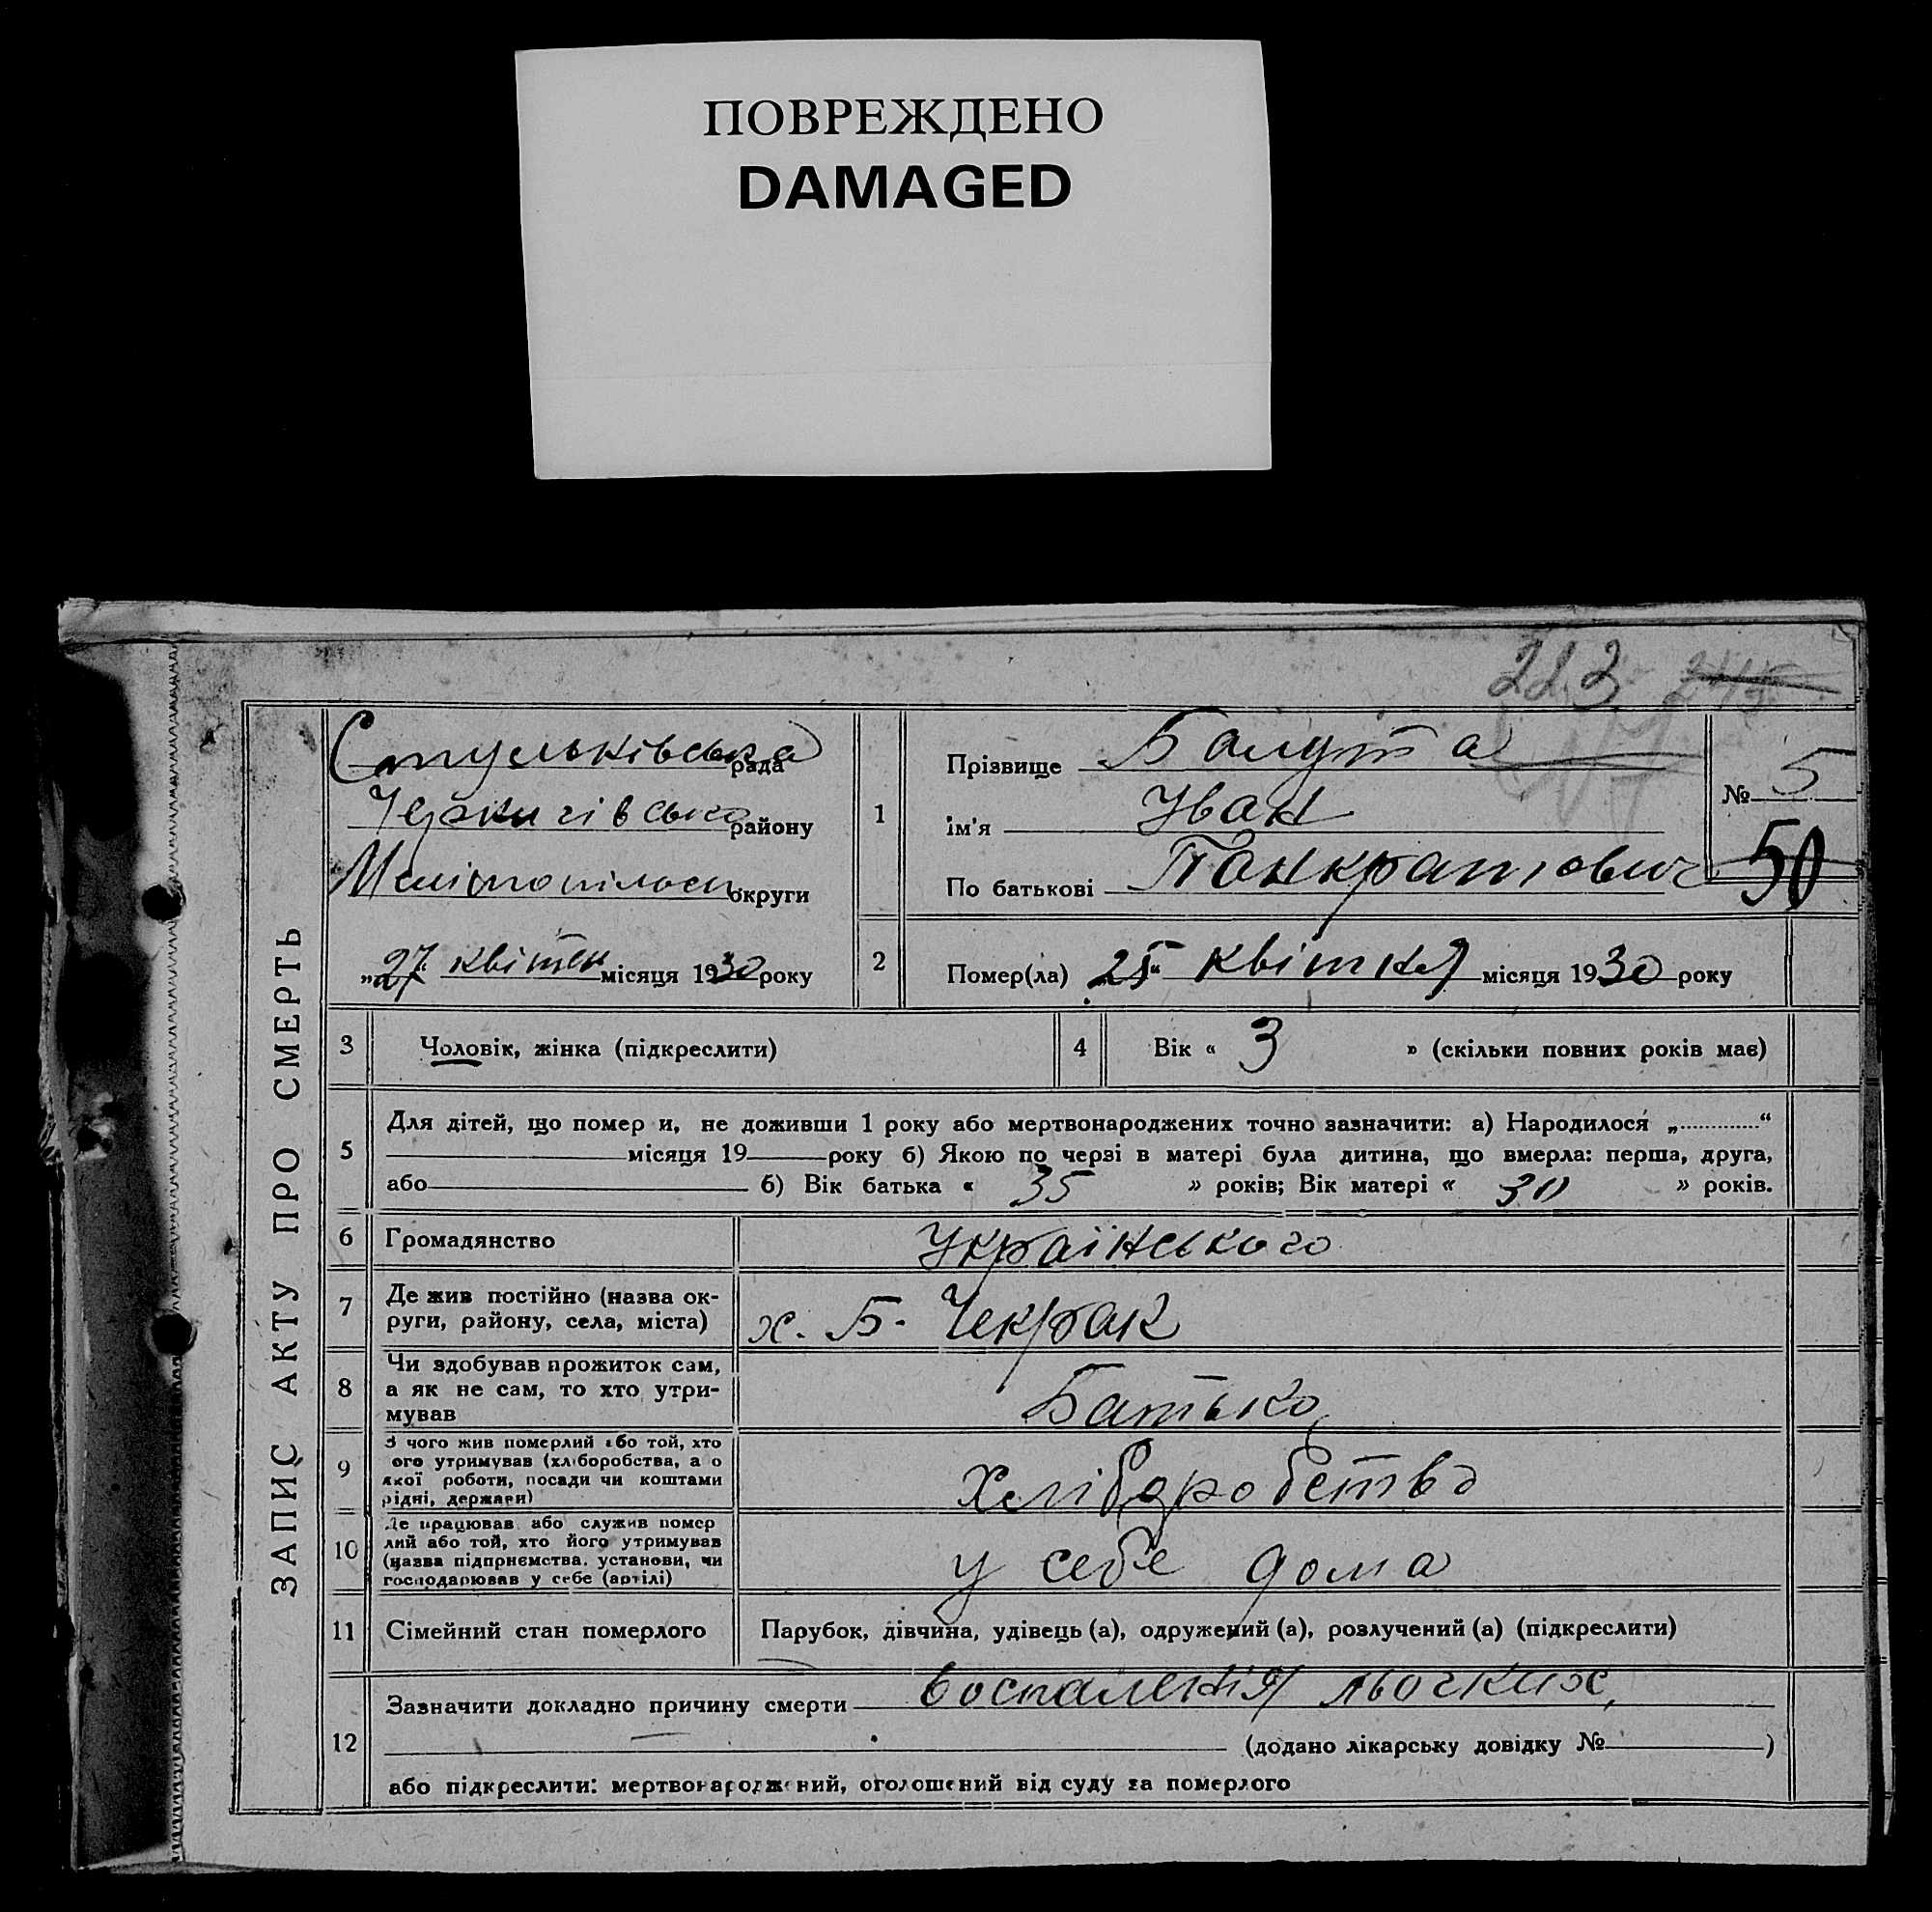 ПОВРЕЖДЕНО
DAMAGED
223
ЗАПИС АКТУ ПРО СМЕРТЬ
рада
району
Мелітопільськ округи
„27" квітня місяця 1930 року
1
Прізвище Балута
ім'я Іван
По батькові Панкратович
№ 5
50
2
Помер(ла) 25 квітня місяця 1930 року
3
Чоловік, жінка (підкреслити)
4
Вік « 3 » (скільки повних років має)
5
Для дітей, що помер и, не доживши 1 року або мертвонароджених точно зазначити: а) Народилося „............“
місяця 19 року б) Якою по черзі в матері була дитина, що вмерла: перша, друга,
або б) Вік батька « 35 » років; Вік матері « 30 » років.
6
Громадянство
Українського
7
Де жив постійно (назва ок-
руги, району, села, міста)
х. Б. Чекрак
8
Чи здобував прожиток сам,
а як не сам, то хто утри-
мував
Батько
9
З чого жив померлий або той, хто
ого утримував (хліборобства, а о
якої роботи, посади чи коштами
рідні, держави)
Хліборобство
10
Де працював або служив помер
лий або той, хто його утримував
(назва підприємства, установи, чи
господарював у себе (артілі)
у себе дома
11
Сімейний стан померлого
Парубок, дівчина, удівець (а), одружений (а), розлучений (а) (підкреслити)
12
Зазначити докладно причину смерти воспаленія льогких,
(додано лікарську довідку № )
або підкреслити: мертвонароджений, оголошений від суду за померлого